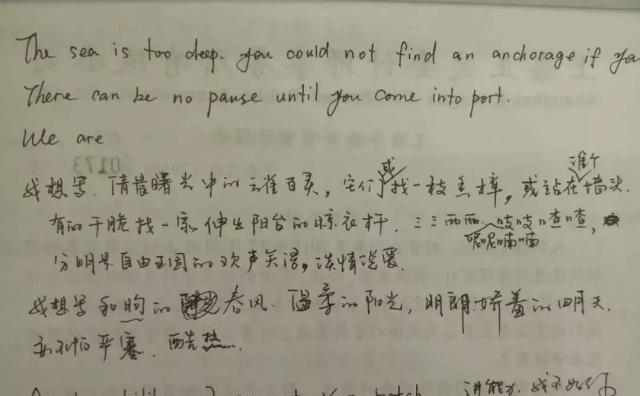 The sea is too deep. you could not find an anchorage if you
There can be no pause until you come into port.
We are
我想写. 清晨曙光中的云雀百灵, 它们或找一枝香樟, 或站在谁个墙头.
有的干脆找一家伸出阳台的晾衣杆. 三三两两. 吱吱喳喳, 呢呢喃喃
分明是自由王国的欢声笑语, 谈情说爱.
我想写和煦的春风. 温柔的阳光, 明朗娇羞的四月天.
严寒. 酷热.